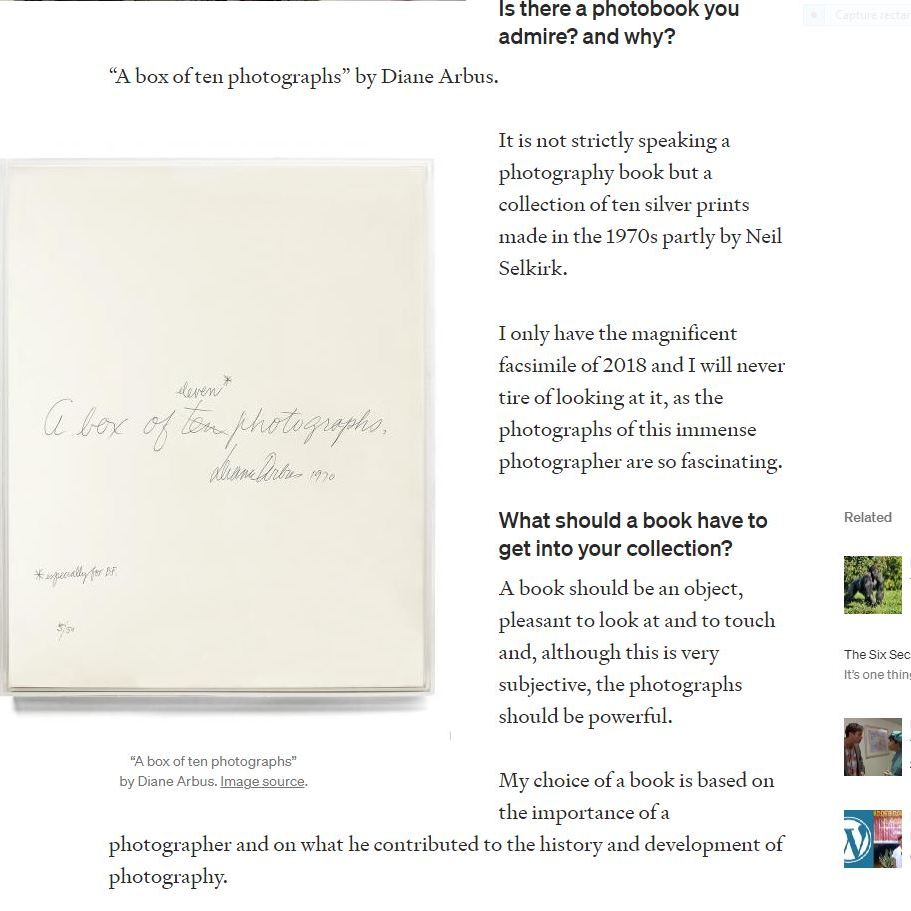 Is there a photobook you
admire? and why?
“A box of ten photographs” by Diane Arbus.
It is not strictly speaking a
photography book but a
collection of ten silver prints
made in the 1970s partly by Neil
Selkirk.
I only have the magnificent
facsimile of 2018 and I will never
tire of looking at it, as the
photographs of this immense
photographer are so fascinating.
eleven*
A box of ten photographs.
Diane Arbus 1970
* especially for BF.
5/50
“A box of ten photographs”
by Diane Arbus. Image source.
What should a book have to
get into your collection?
A book should be an object,
pleasant to look at and to touch
and, although this is very
subjective, the photographs
should be powerful.
My choice of a book is based on
the importance of a
photographer and on what he contributed to the history and development of
photography.
Related
The Six Sec
It’s one thing
W
Capture rectar